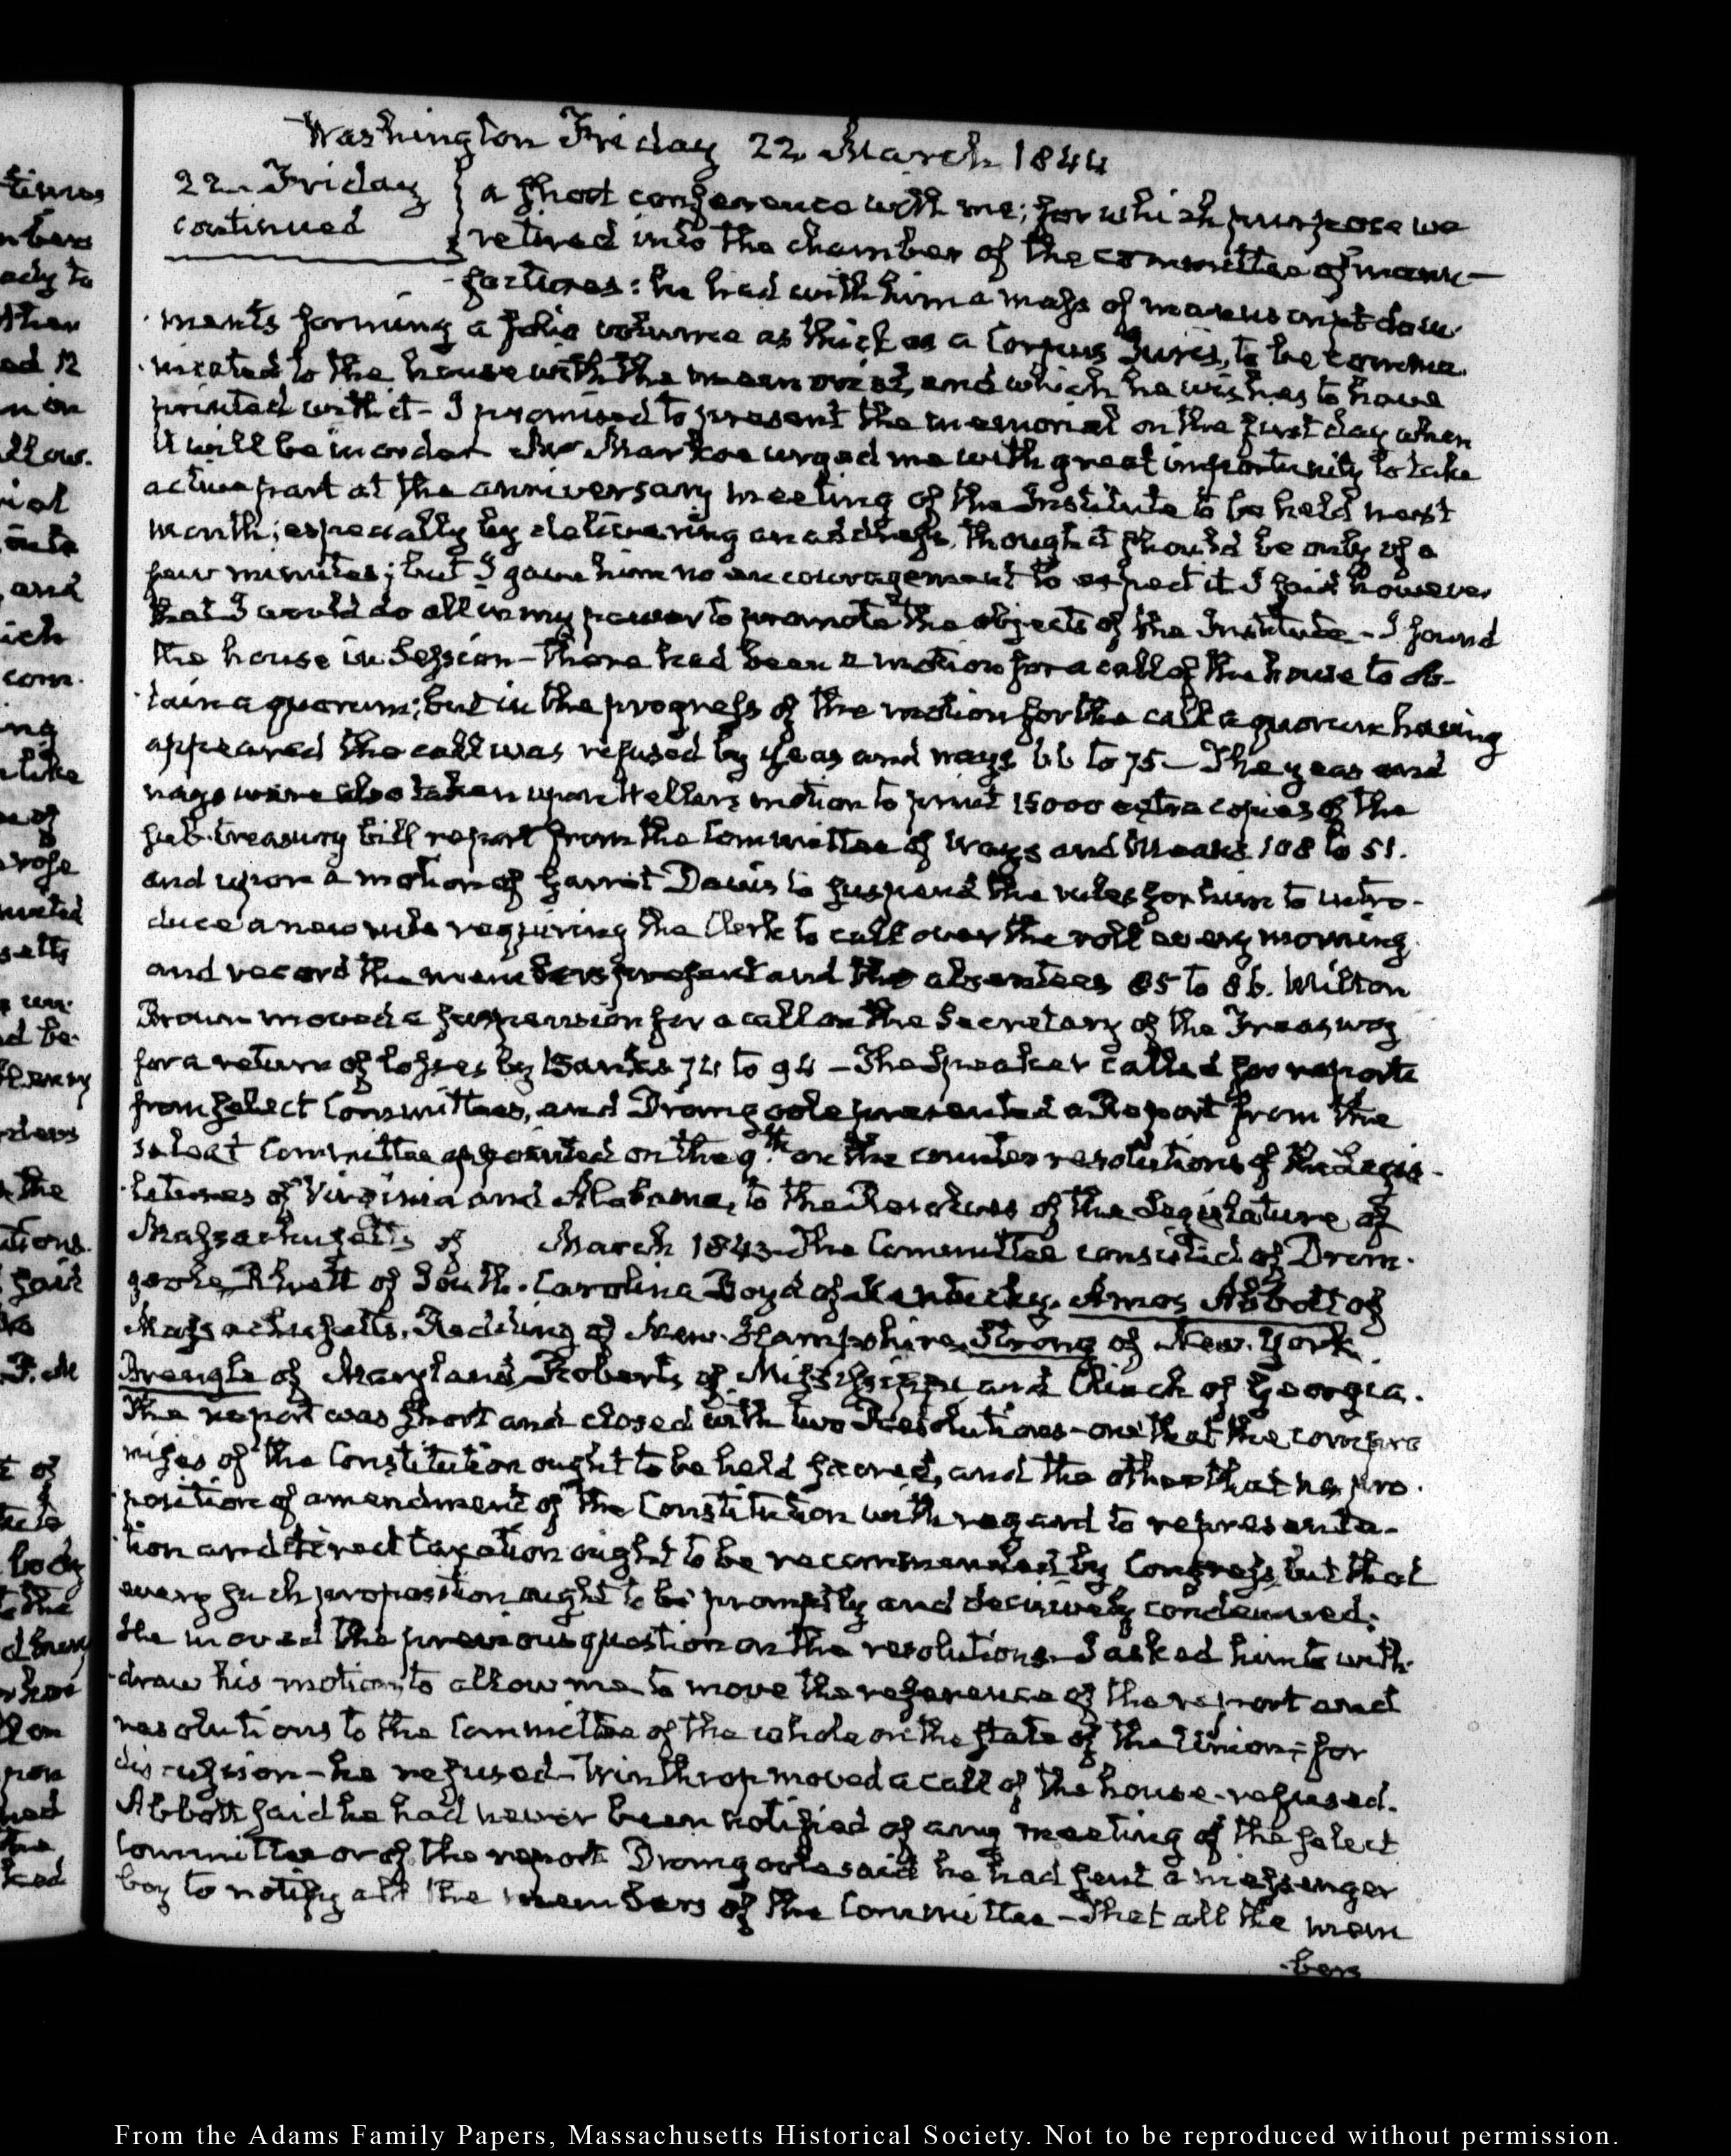 Washington Friday 22 March 1844
22. Friday
continued
a short conference with me; for which purpose we
retired into the chamber of the committee of manu-
factures: he had with him a mass of manuscript docu-
ments forming a folio volume as thick as a Corpus Juris, to be commu-
nicated to the house with the memorial, and which he wishes to have
printed with it - I promised to present the memorial on the first day when
it will be in order. Mr Markoe urged me with great importunity to take
active part at the anniversary meeting of the Institute to be held next
month; especially by delivering an address, though it should be only of a
few minutes; but I gave him no encouragement to expect it I said however
that I would do all in my power to promote the objects of the Institute - I found
the house in Session - There had been a motion for a call of the house to ob-
tain a quorum; but in the progress of the motion for the call a quorum having
appeared the call was refused by yeas and nays 66 to 75 - The yeas and
nays were also taken upon Weller's motion to print 15000 extra copies of the
sub-treasury bill report from the Committee of Ways and Means 108 to 51.
and upon a motion of Garrit Davis to suspend the rules for him to intro-
duce a new rule requiring the Clerk to call over the roll every morning
and record the members present and the absentees 85 to 86. Milton
Brown moved a suspension for a call on the Secretary of the Treasury
for a return of losses by Banks 74 to 94 - The Speaker called for reports
from select Committees, and Dromgoole presented a Report from the
select Committee appointed on the 9th on the counter resolutions of the Legis-
latures of Virginia and Alabama, to the Resolves of the Legislature of
Massachusetts of March 1843. The Committee consisted of Drom-
goole, Rhett of South-Carolina Boyd of Kentucky, Amos Abbott of
Massachusetts, Redding of New-Hampshire, Strong of New-York
Brengle of Maryland, Roberts of Mississippi and Chinck of Georgia.
The report was short and closed with two Resolutions - one that the compro
mises of the Constitution ought to be held sacred, and the other that no pro-
position of amendment of the Constitution with regard to representa-
tion and direct taxation ought to be recommended by Congress, but that
every such proposition ought to be promptly and decisively condemned:
He moved the previous question on the resolutions. I asked him to with-
draw his motion, to allow me to move the reference of the report and
resolutions to the Committee of the whole on the state of the Union, for
discussion - he refused - Winthrop moved a call of the house - refused.
Abbott said he had never been notified of any meeting of the select
Committee or of the report Dromgoole said he had sent a messenger
boy to notify all the members of the Committee - That all the mem
bers
From the Adams Family Papers, Massachusetts Historical Society. Not to be reproduced without permission.